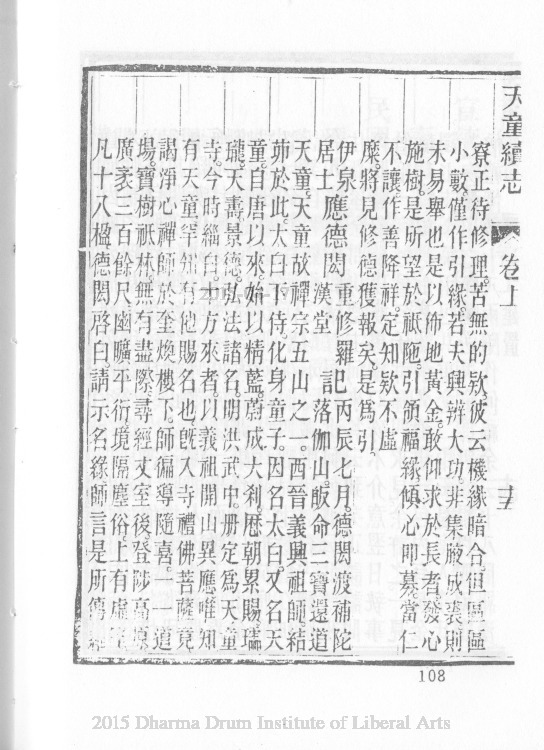 天童續志 卷上 十五
寮正待修理苦無的欵彼云機緣暗合但區區
小數僅作引緣若夫興辦大功非集腋成裘則
未易舉也是以佈地黃金敢仰求於長者發心
施樹是所望於祗陁引領福緣傾心卽募當仁
不讓作善降祥定知欵不虛
糜將見修德獲報矣是爲引
伊泉居士應德閎重修羅漢堂記
丙辰七月德閎渡補陀
落伽山皈命三寶還道
天童天童故禪宗五山之一西晉義興祖師結
茆於此太白下侍化身童子因名太白又名天
童自唐以來始以精藍蔚成大刹歷朝累賜瓏
瓏天壽景德弘法諸名明洪武中册定爲天童
寺今時緇白十方來者以義祖開山異應唯知
有天童罕知有他賜名也旣入寺禮佛菩薩竟
謁淨心禪師於奎煥樓下師偏導隨喜一一道
場寶樹祇林無有盡際尋經丈室後登陟高原
廣袤三百餘尺幽曠平衍境隔塵俗上有虛堂
凡十八楹德閎啓白請示名緣師言是所傳
108
2015 Dharma Drum Institute of Liberal Arts